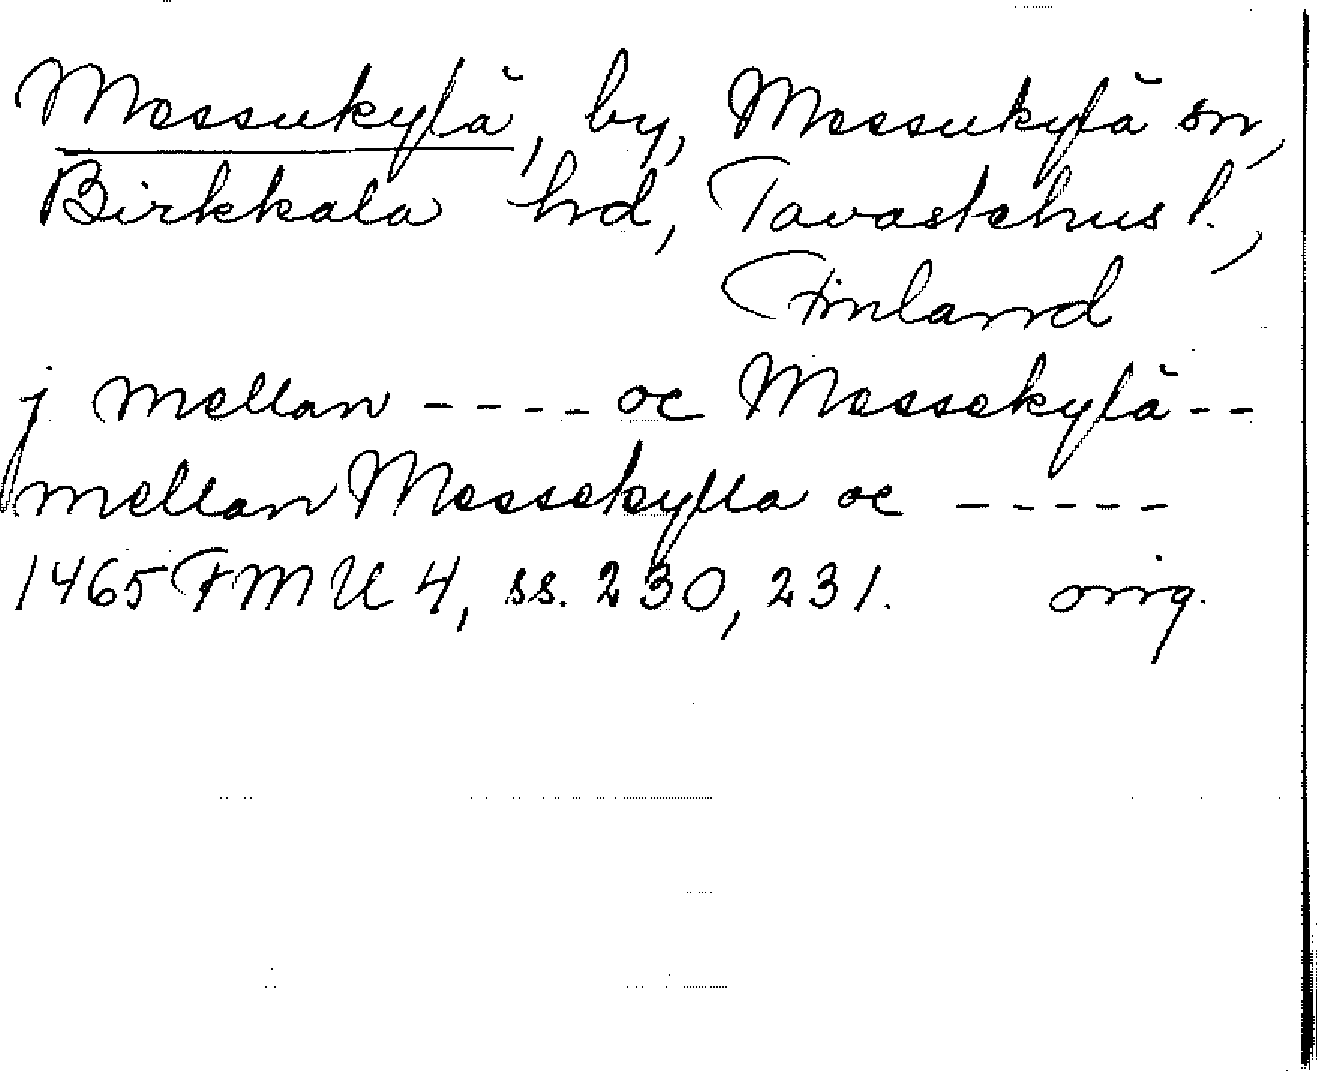 Messukylä, by, Messukylä sn,
Birkkala hrd, Tavastehus l.,
Finland
j mellan - - - - oc Messekylä - -
mellan Messekylla oc - - - - -
1465 FMU 4, ss. 230, 231. orig.